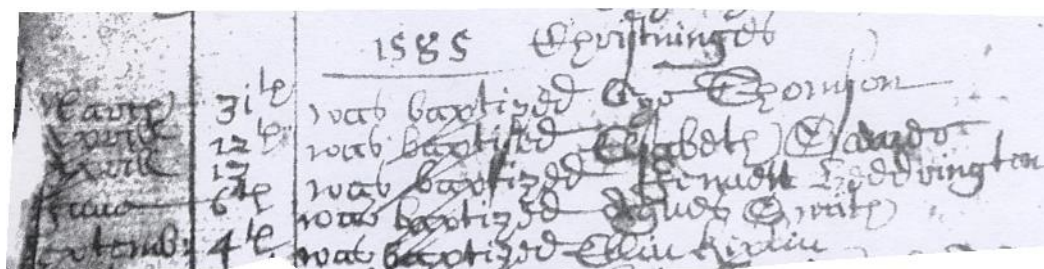 1585 Christninges
March 31th was baptized Tho Thomson
Aprill 12th was baptized Elsabeth
Aprill 13 was baptized Heddrington
June 6th was baptized Agnes Smith
September 4th was baptized Ellin